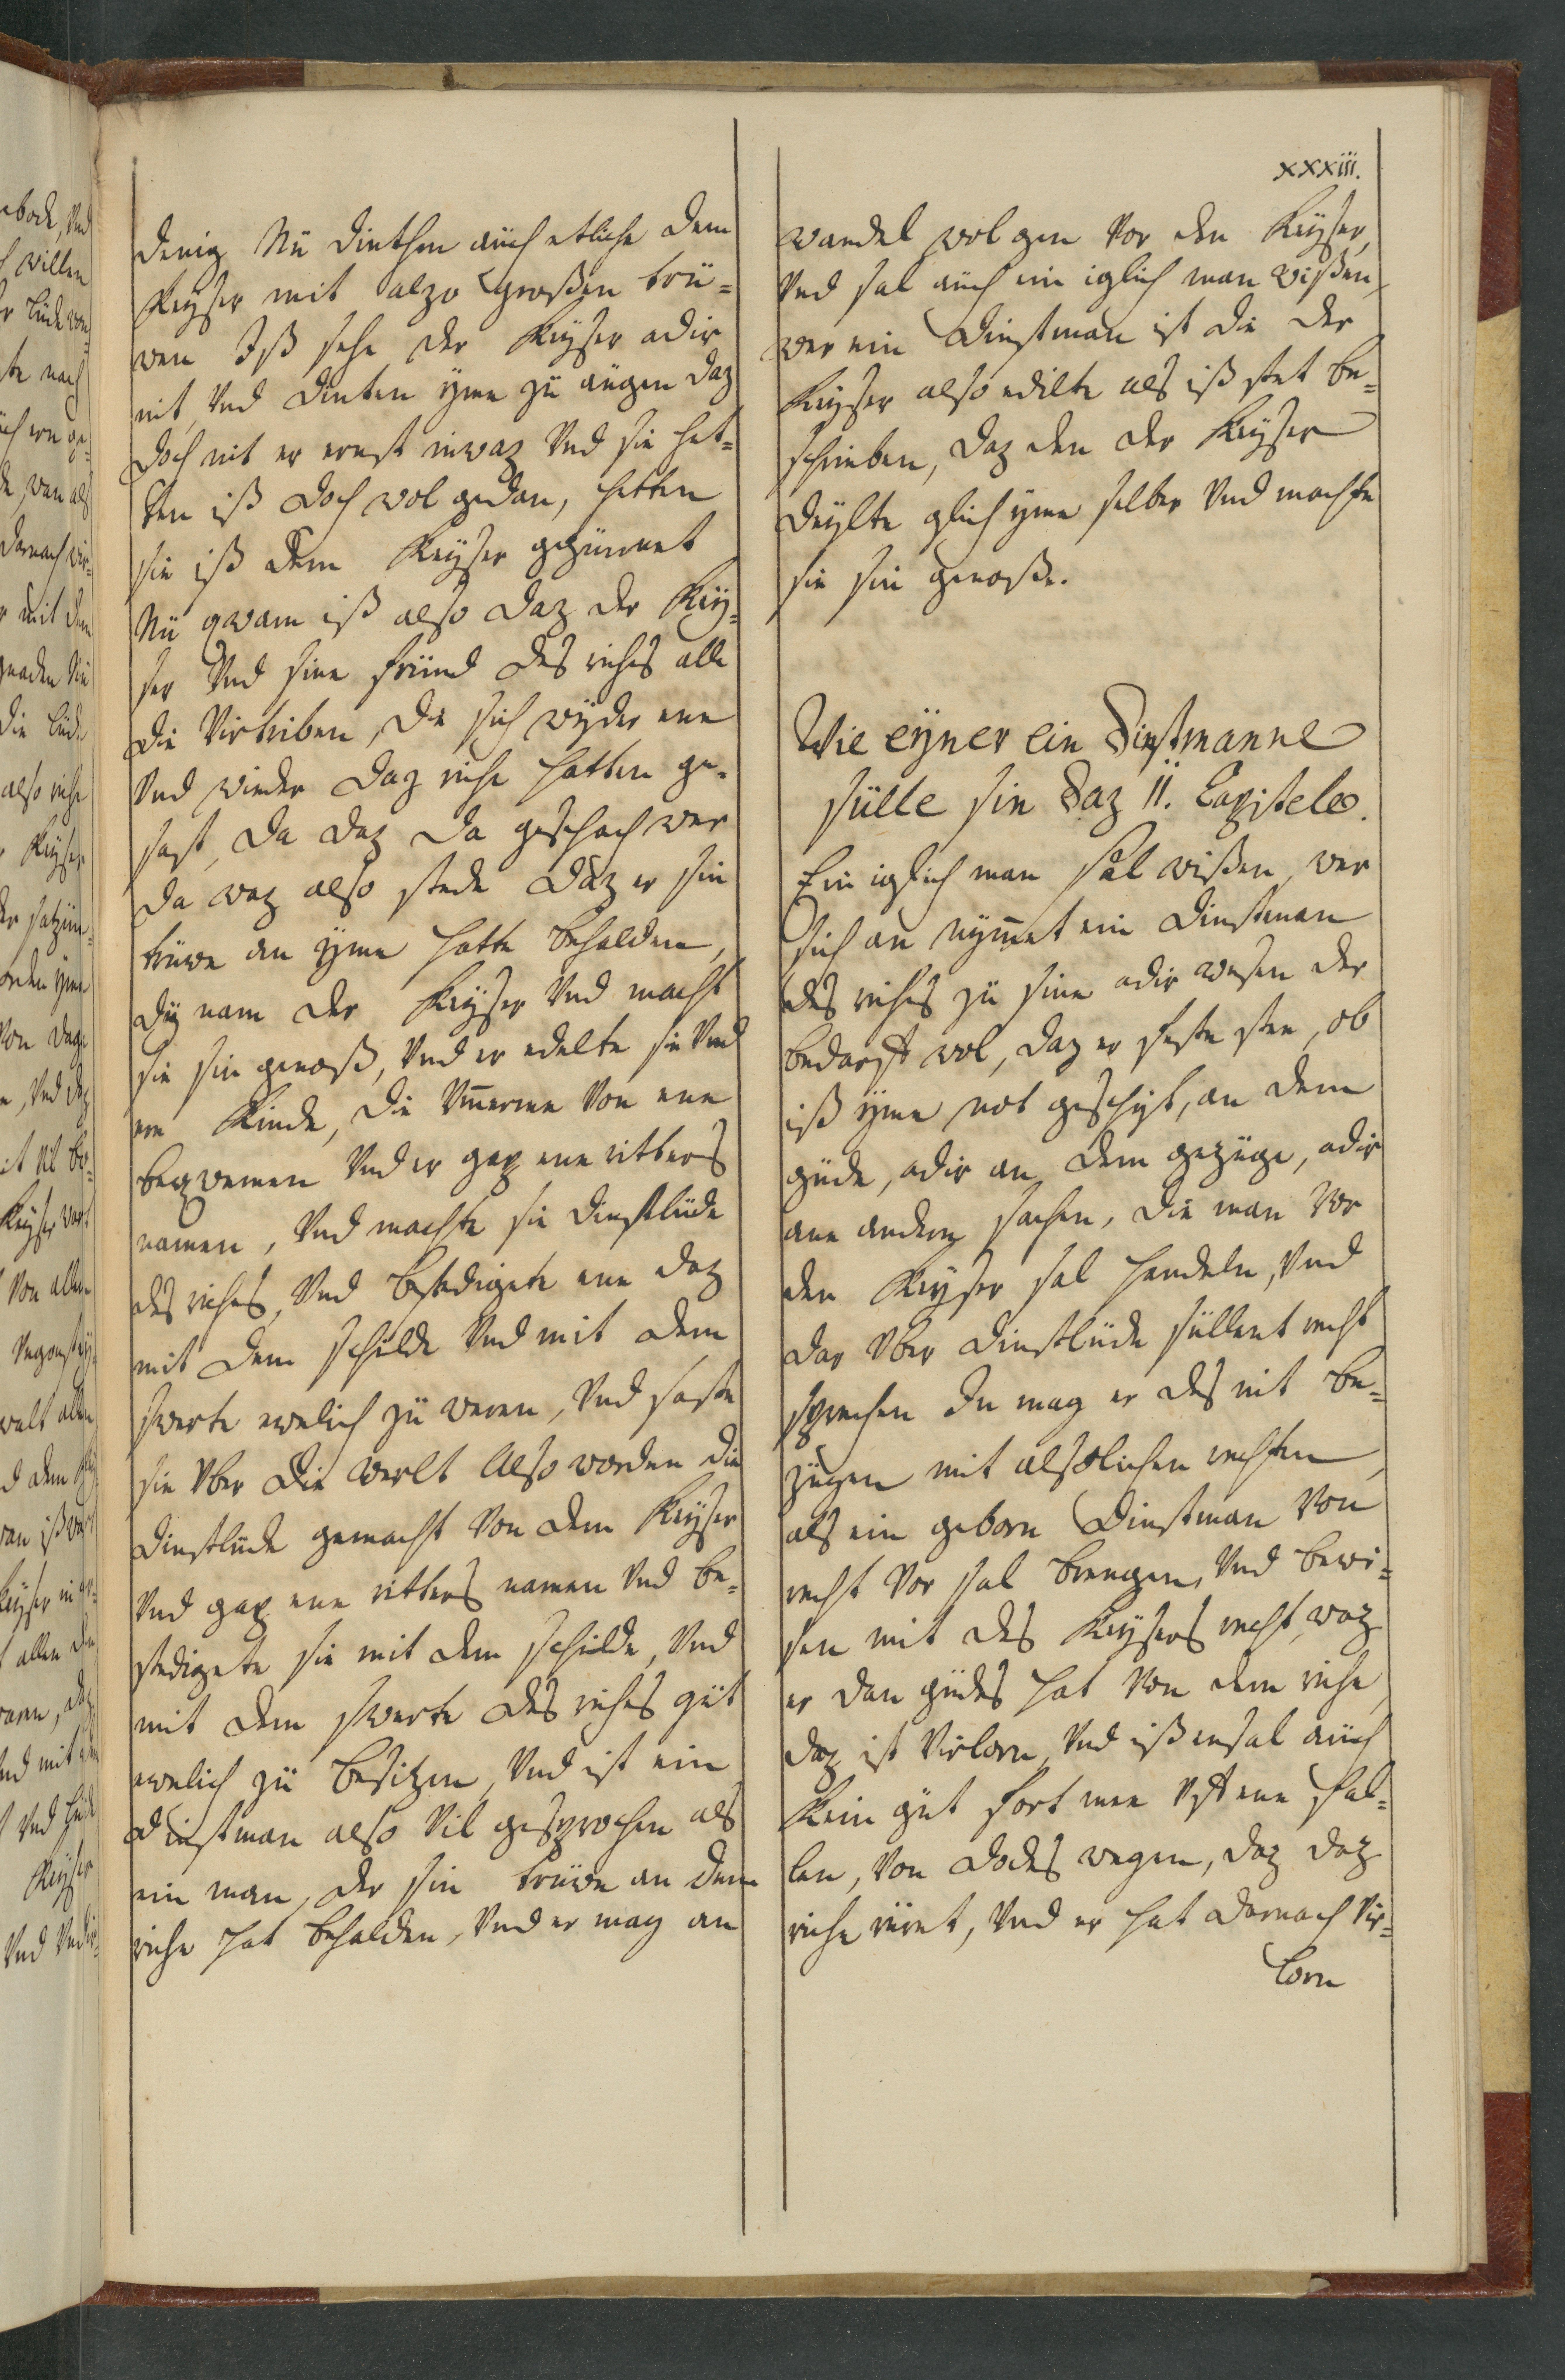 xxxiii.
denig Nü dinthen aüch etliche dem
Keyser mit alzo großen trü=
wen Iß sehe der Keyser adir
nit Vnd dinten yme zü aügen daz
doch nit er ernst inwaz Vnd sie het=
ten iß doch wol gedan, hetten
sie iß dem Keyser gegünnet
Nü qwam iß also daz der Key=
ser Vnd sine fründ des riches alle
die Virtriben, die sich wyder ene
Vnd wieder daz riche hatten ge=
sast, da daz da geschach wer
da waz also stede daz er sin
trüwe an yme hatte behalden,
dy nam der Keyser Vnd macht
sie sin genoß, Vnd er edelte sie Vnd
ere Kinde, die Vmerme Von ene
beqwemen Vnd er gap ene ritters
namen, Vnd machte sie dinstlüde
des riches, Vnd bestedigete ene daz
mit dem schilde Vnd mit dem
swerte ewelich zü weren, Vnd saste
sie Vber die werlt Also worden die
dinstlüde gemacht Von dem Keyser
Vnd gap ene ritters namen Vnd be=
stedigete sie mit dem schilde, Vnd
mit dem swerte des riches güt
ewelich zü besitzen, Vnd ist ein
dinstman also Vil gesprochen als
ein man, der sin trüwe an dem
riche hat behalden, Vnd er mag an
wandel wol gen Vor den Keyser,
Vnd sal aüch ein iglich man wißen,
wer ein dinstman ist die der
Keyser also edilte als iß stet be=
schrieben, daz den der Keyser
deylte glich yme selber Vnd machte
sie sin genoße.
Wie eyner ein Dinstmanne
sülle sin Daz II. Capistele.
Ein iglich man sal wißen, wer
sich an nymet ein dinstman
des riches zü sine adir wesen der
bedarff wol, daz er feste ste, ob
iß yme not geschyt, an dem
güde, adir an dem gezüge, adir
ane andern sachen, die man Vor
den Keyser sal handeln, Vnd
dar Vber dinstlüde süllent recht
sprechen In mag er des nit be=
zügen mit alsolichen rechten,
als ein geborn Dinstman Von
recht Vor sal brengen, Vnd bewi=
sen mit des Keysers recht waz
er dan güdes hat Von dem riche
daz ist Virlorn, Vnd iß ensal aüch
Kein güt fort me Vff ene fal=
len, Von dodes wegen, daz daz
riche rüret, Vnd er hat darnach Vir=
lorn